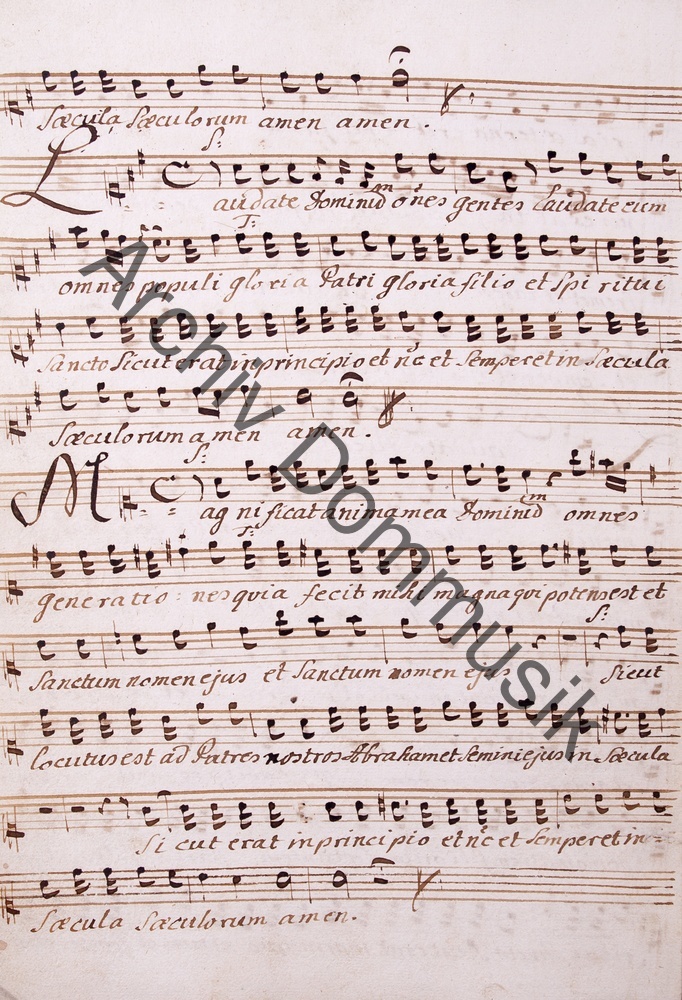 Sæcula, Sæculorum amen amen.
S:
Laudate Dominũ om̃es gentes laudate eum
T:
omnes populi gloria Patri gloria filio et Spiritui
Sancto Sicut erat in principio et nc̃ et Semper et in Sæcula
Sæculorum amen amen.
S:
Magnificat anima mea Dominũ omnes
T:
generatio: nes quia fecit mihi magna qui potens est et
S:
Sanctum nomen ejus et Sanctum nomen ejus Sicut
locutus est ad Patres nostros Abraham et Semini ejus in Sæcula
Sicut erat in principio et nc̃ et Semper et in =
Sæcula Sæculorum amen.
Archiv Dommusik